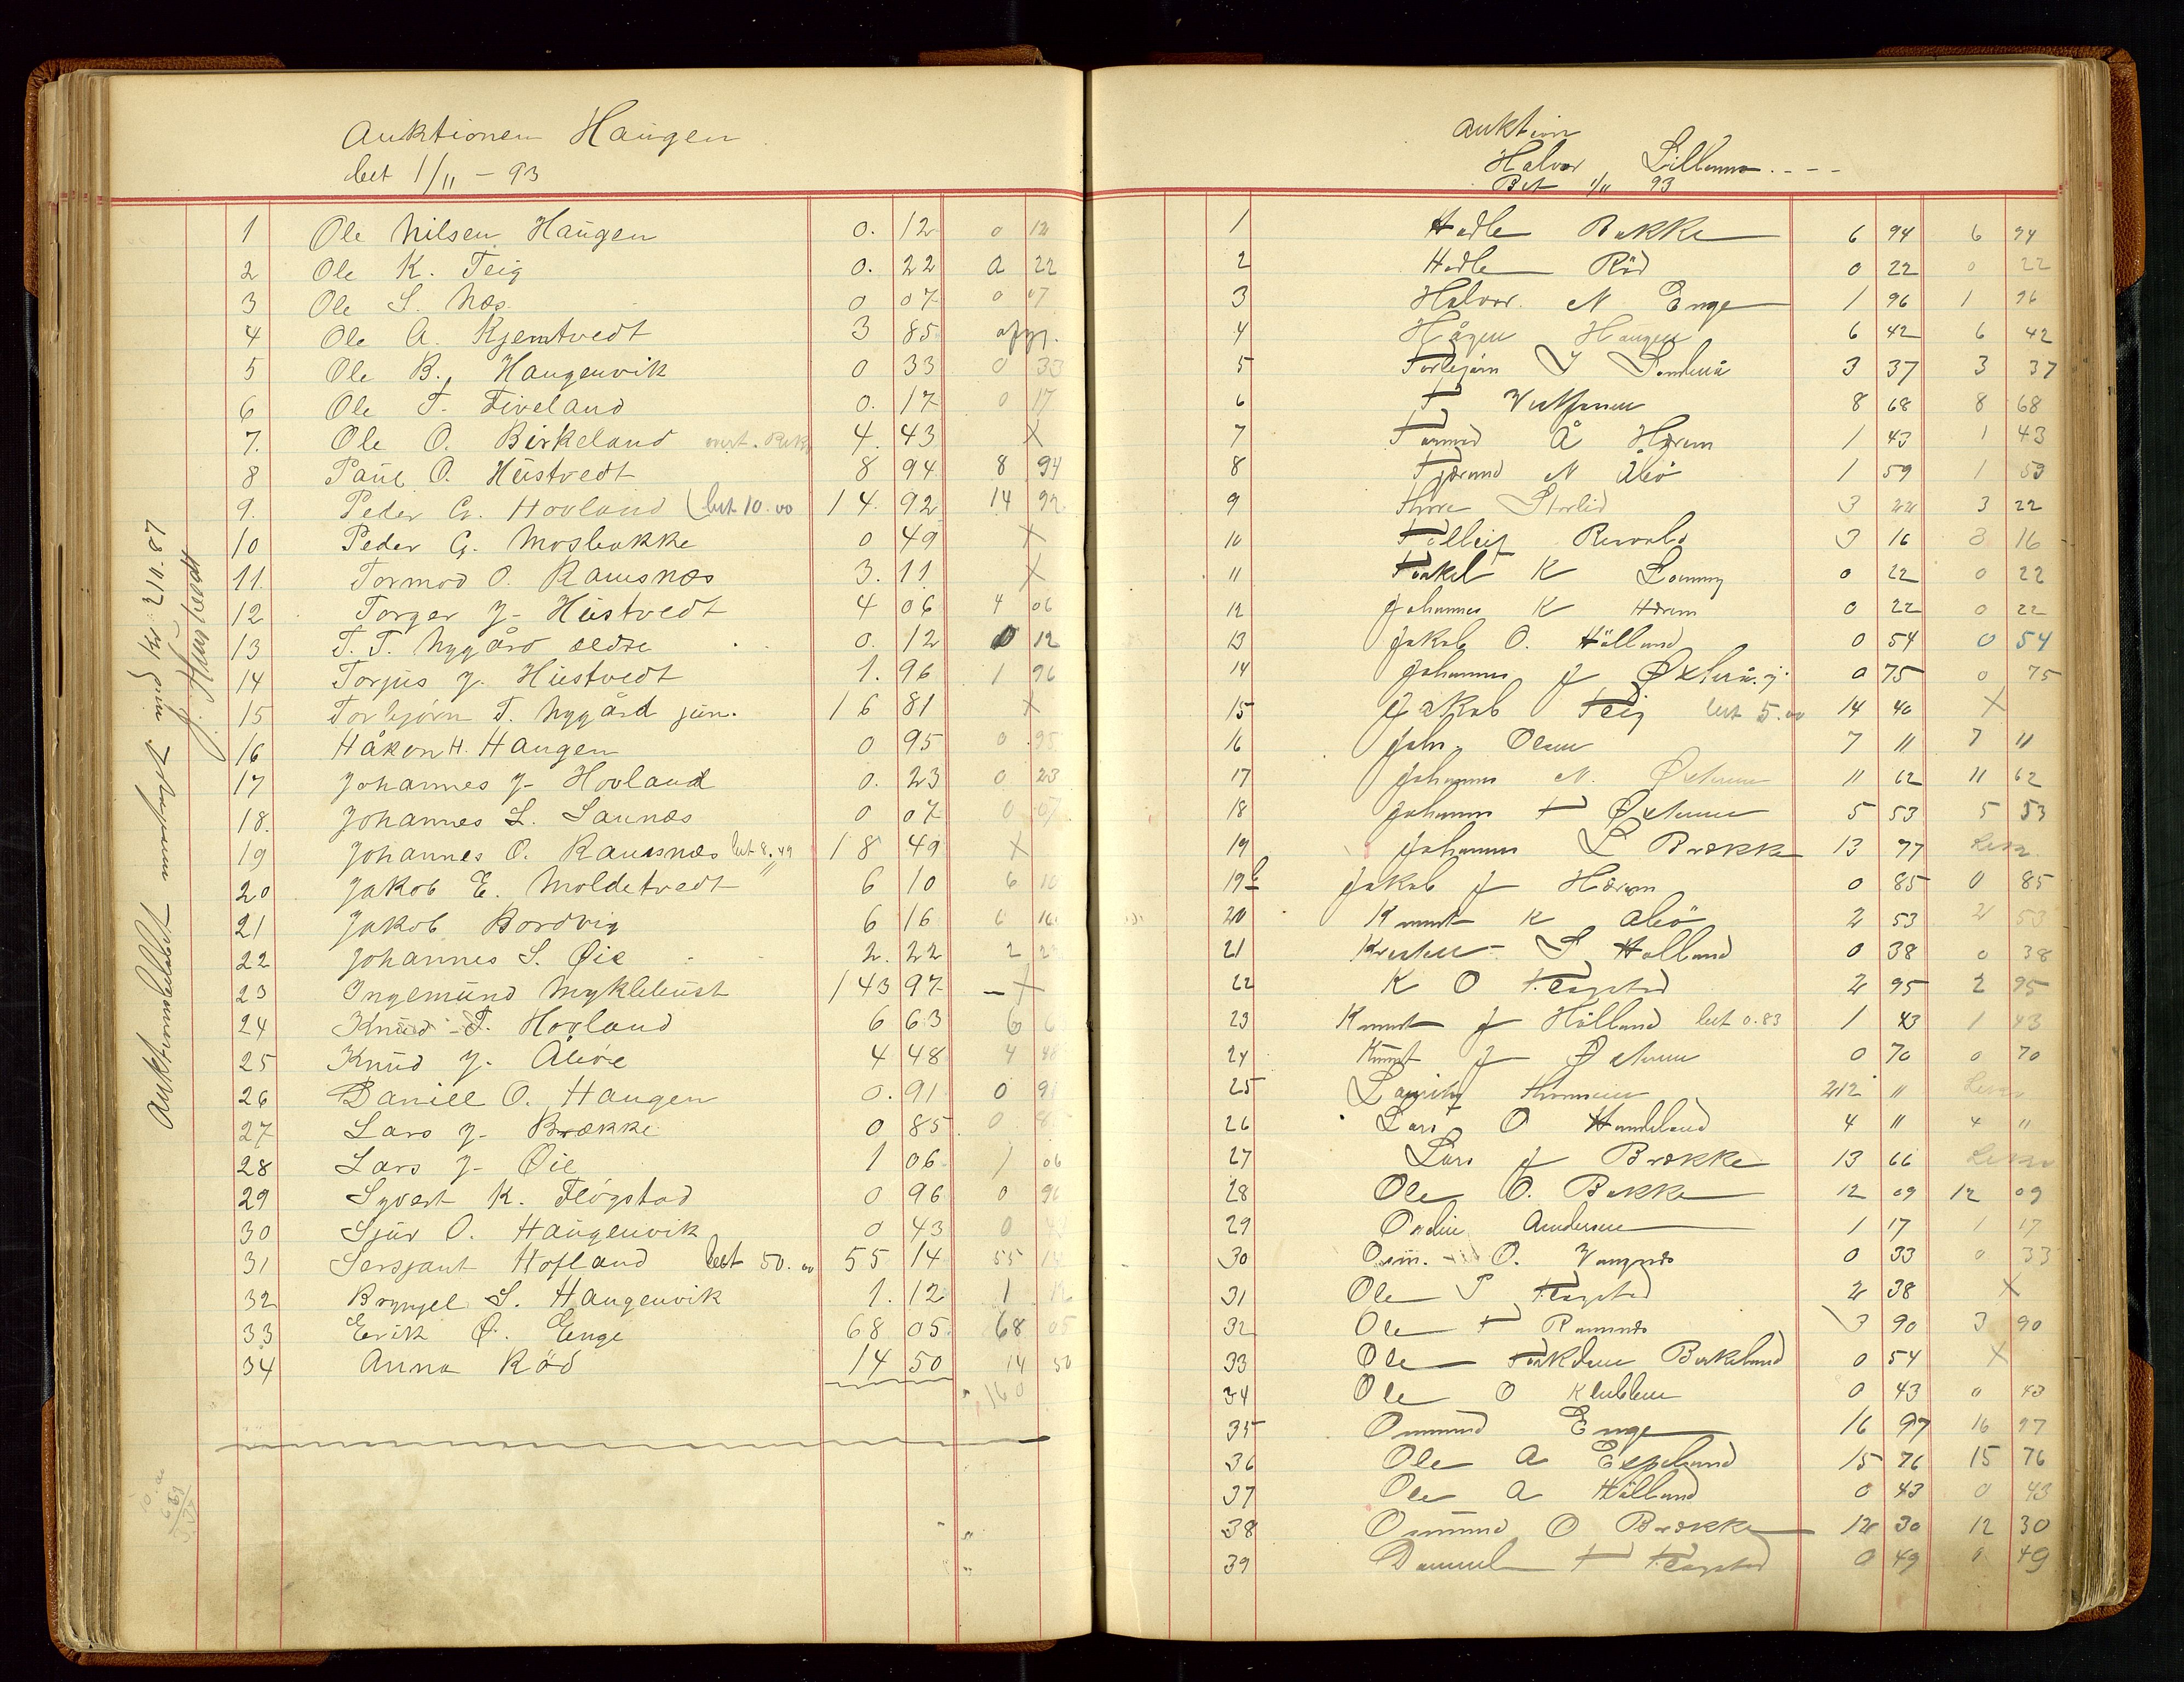 Auktionen Haugen
bet 1/11 - 93
1 Ole Nilsen Haugen 0. 12 0 12
2 Ole K. Teig 0. 22 0 22
3 Ole S. Næs 0 07 0 07
4 Ole A. Kjemtvedt 3 85 afgj.
5 Ole B. Haugenvik 0 33 0 33
6 Ole T. Fiveland 0. 17 0 17
7. Ole O. Birkeland 4. 43 X
8 Paul O. Hustvedt 8 94 8 94
9. Peder G. Hovland (bet 10.00 14. 92 14 92
10 Peder G. Mosbakke 0 49 X
11. Tormod O. Ramsnæs 3. 11 X
12 Torger J. Hustvedt 4 06 4 06
13 T. T. Nygård ældre 0. 12 0 12
14 Torjus J. Hustvedt 1. 96 1 96
15 Torbjørn T. Nygård jun. 16 81 X
16 Håkon H. Haugen 0 95 0 95
17 Johannes J. Hovland 0. 23 0 23
18. Johannes L. Saunæs 0 07 0 07
19 Johannes O. Ramsnæs bet 8.49 18 49 X
20 Jakob E. Moldetvedt 6 10 6 10
21 Jakob Bordvig 6 16 6 16
22 Johannes S. Øie 2. 22 2 22
23 Ingemund Myklebust 143 97 - X
24 Knud T. Hovland 6 63 6 6
25 Knud J. Åbøe 4 48 4 48
26 Daniel O. Haugen 0. 91 0 91
27 Lars J. Brække 0 85 0 85
28 Lars J. Øie 1 06 1 06
29 Syvert K. Fløgstad 0 96 0 96
30 Sjur O. Haugenvik 0 43 0 43
31 Sersjant Hofland bet 50.00 55 14 55 14
32 Brynjel S. Haugenvik 1. 12 1 12
33 Erik Ø. Enge 68 05 68 05
34 Anna Rød 14 50 14 50
160
Auktionsbeløbet modtaget med kr: 210.87
J. Hustvedt
Auktion
Halvor
Bet 1/11 93
1 Hadle Bakke 6 94 6 94
2 Hadle Röd 0 22 0 22
3 Halvor N Enge 1 96 1 96
4 Hågen Haugen 6 42 6 42
5 Torbjørn S 3 37 3 37
6 T 8 68 8 68
7 Tormod Å Hærem 1 43 1 43
8 N Åbö 1 59 1 59
9 Storlid 3 22 3 22
10 3 16 3 16
11 Torkel K 0 22 0 22
12 Johannes K Hærem 0 22 0 22
13 Jakob O. Hålland 0 54 0 54
14 Johannes J 0 75 0 75
15 Jakob Teig bet 5.00 14 40 X
16 Joh. Olsen 7 11 7 11
17 Johannes N. 11 62 11 62
18 Johannes T 5 53 5 53
19 Johannes L Brække 13 77
19b Jakob J Hærem 0 85 0 85
20 Knut K Åbö 2 53 2 53
21 S Hålland 0 38 0 38
22 K O Fløgstad 2 95 2 95
23 Knut J Hålland bet 0.83 1 43 1 43
24 Knut J 0 70 0 70
25 Thomsen 212 "
26 Lars O Handeland 4 " 4 "
27 Lars J Brække 13 66
28 Ole O. Bakke 12 09 12 09
29 Andersen 1 17 1 17
30 O. Vaagnæs 0 33 0 33
31 Ole P Fløgstad 2 38 X
32 Ole T Ramsnæs 3 90 3 90
33 Ole Birkeland 0 54 X
34 Ole O 0 43 0 43
35 Ommund Enge 16 97 16 97
36 Ole A Espeland 15 76 15 76
37 Ole A Hålland 0 43 0 43
38 Osmund O Brække 12 30 12 30
39 T Fløgstad 0 49 0 49